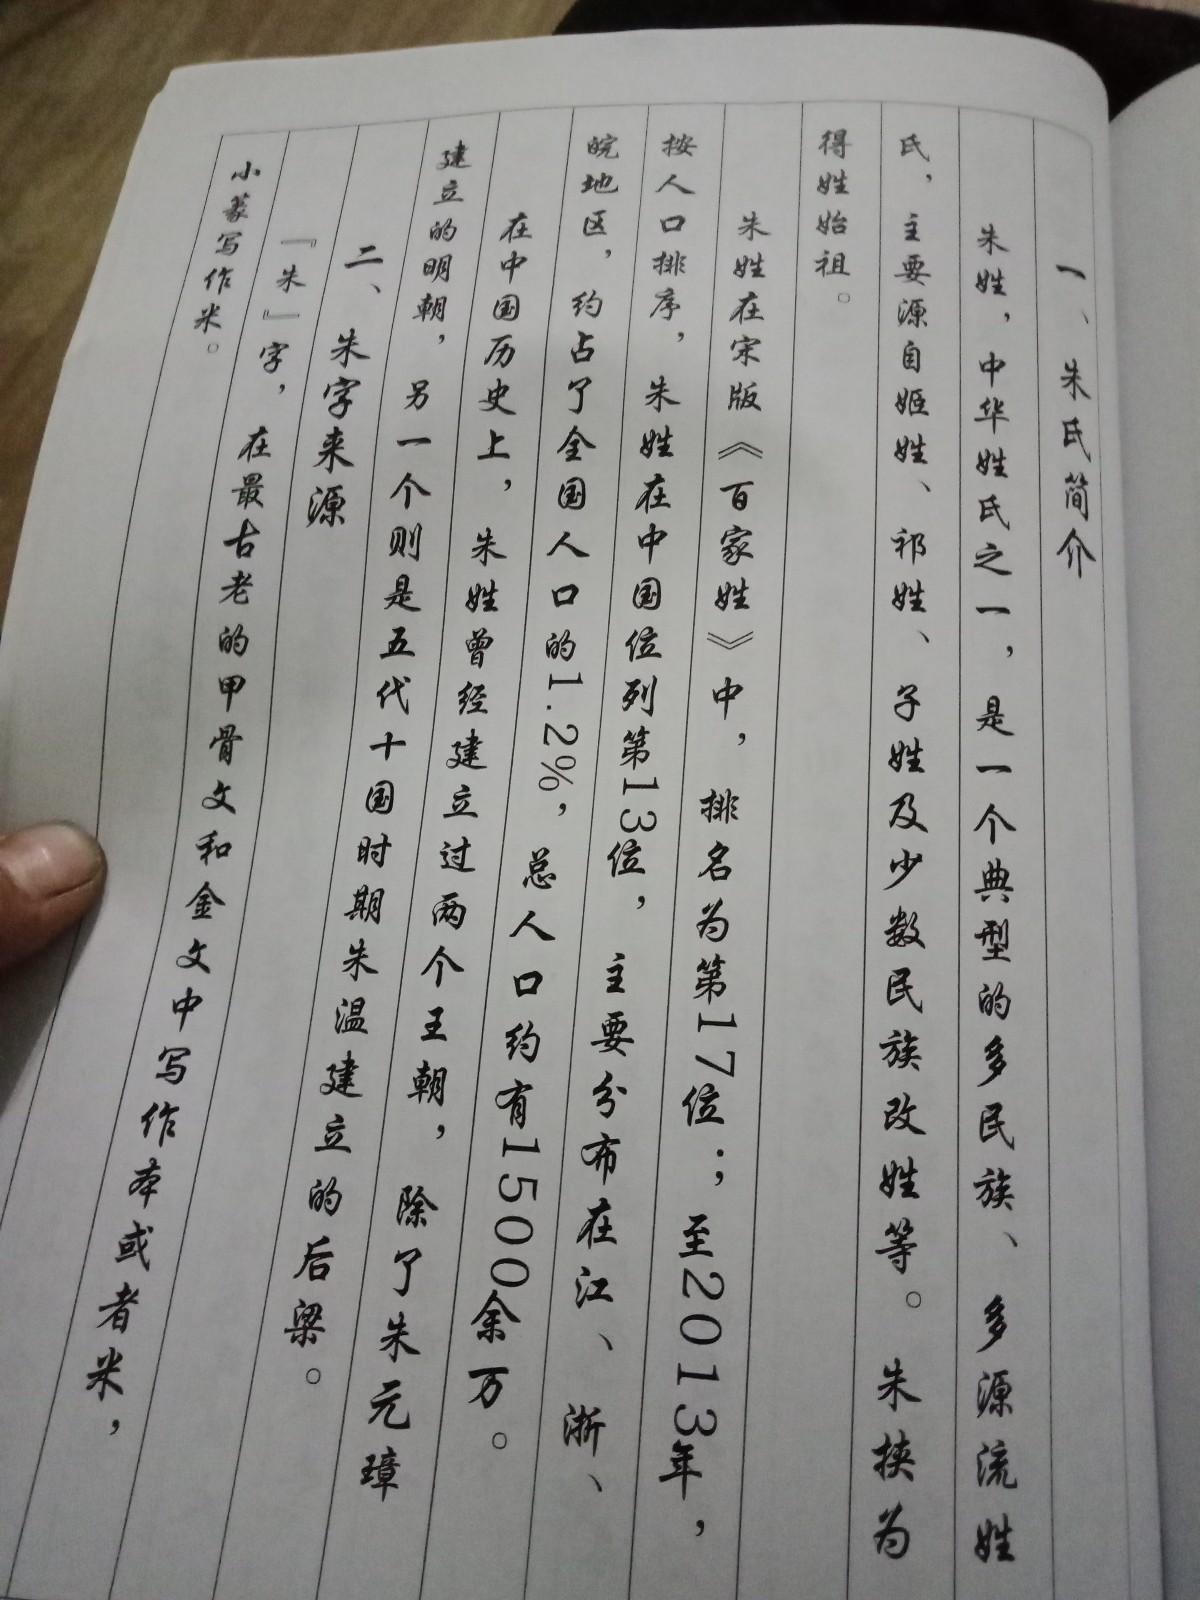 一、朱氏简介
朱姓，中华姓氏之一，是一个典型的多民族、多源流姓
氏，主要源自姬姓、祁姓、子姓及少数民族改姓等。朱挟为
得姓始祖。
朱姓在宋版《百家姓》中，排名为第17位；至2013年，
按人口排序，朱姓在中国位列第13位，主要分布在江、浙、
皖地区，约占了全国人口的1.2%，总人口约有1500余万。
在中国历史上，朱姓曾经建立过两个王朝，除了朱元璋
建立的明朝，另一个则是五代十国时期朱温建立的后梁。
二、朱字来源
『朱』字，在最古老的甲骨文和金文中写作本或者米，
小篆写作米。